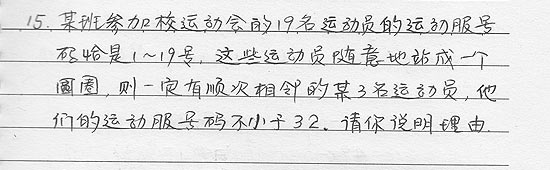 15. 某班参加校运动会的19名运动员的运动服号
码恰是1~19号, 这些运动员随意地站成一个
圆圈, 则一定有顺次相邻的某3名运动员, 他
们的运动服号码不小于32. 请你说明理由.